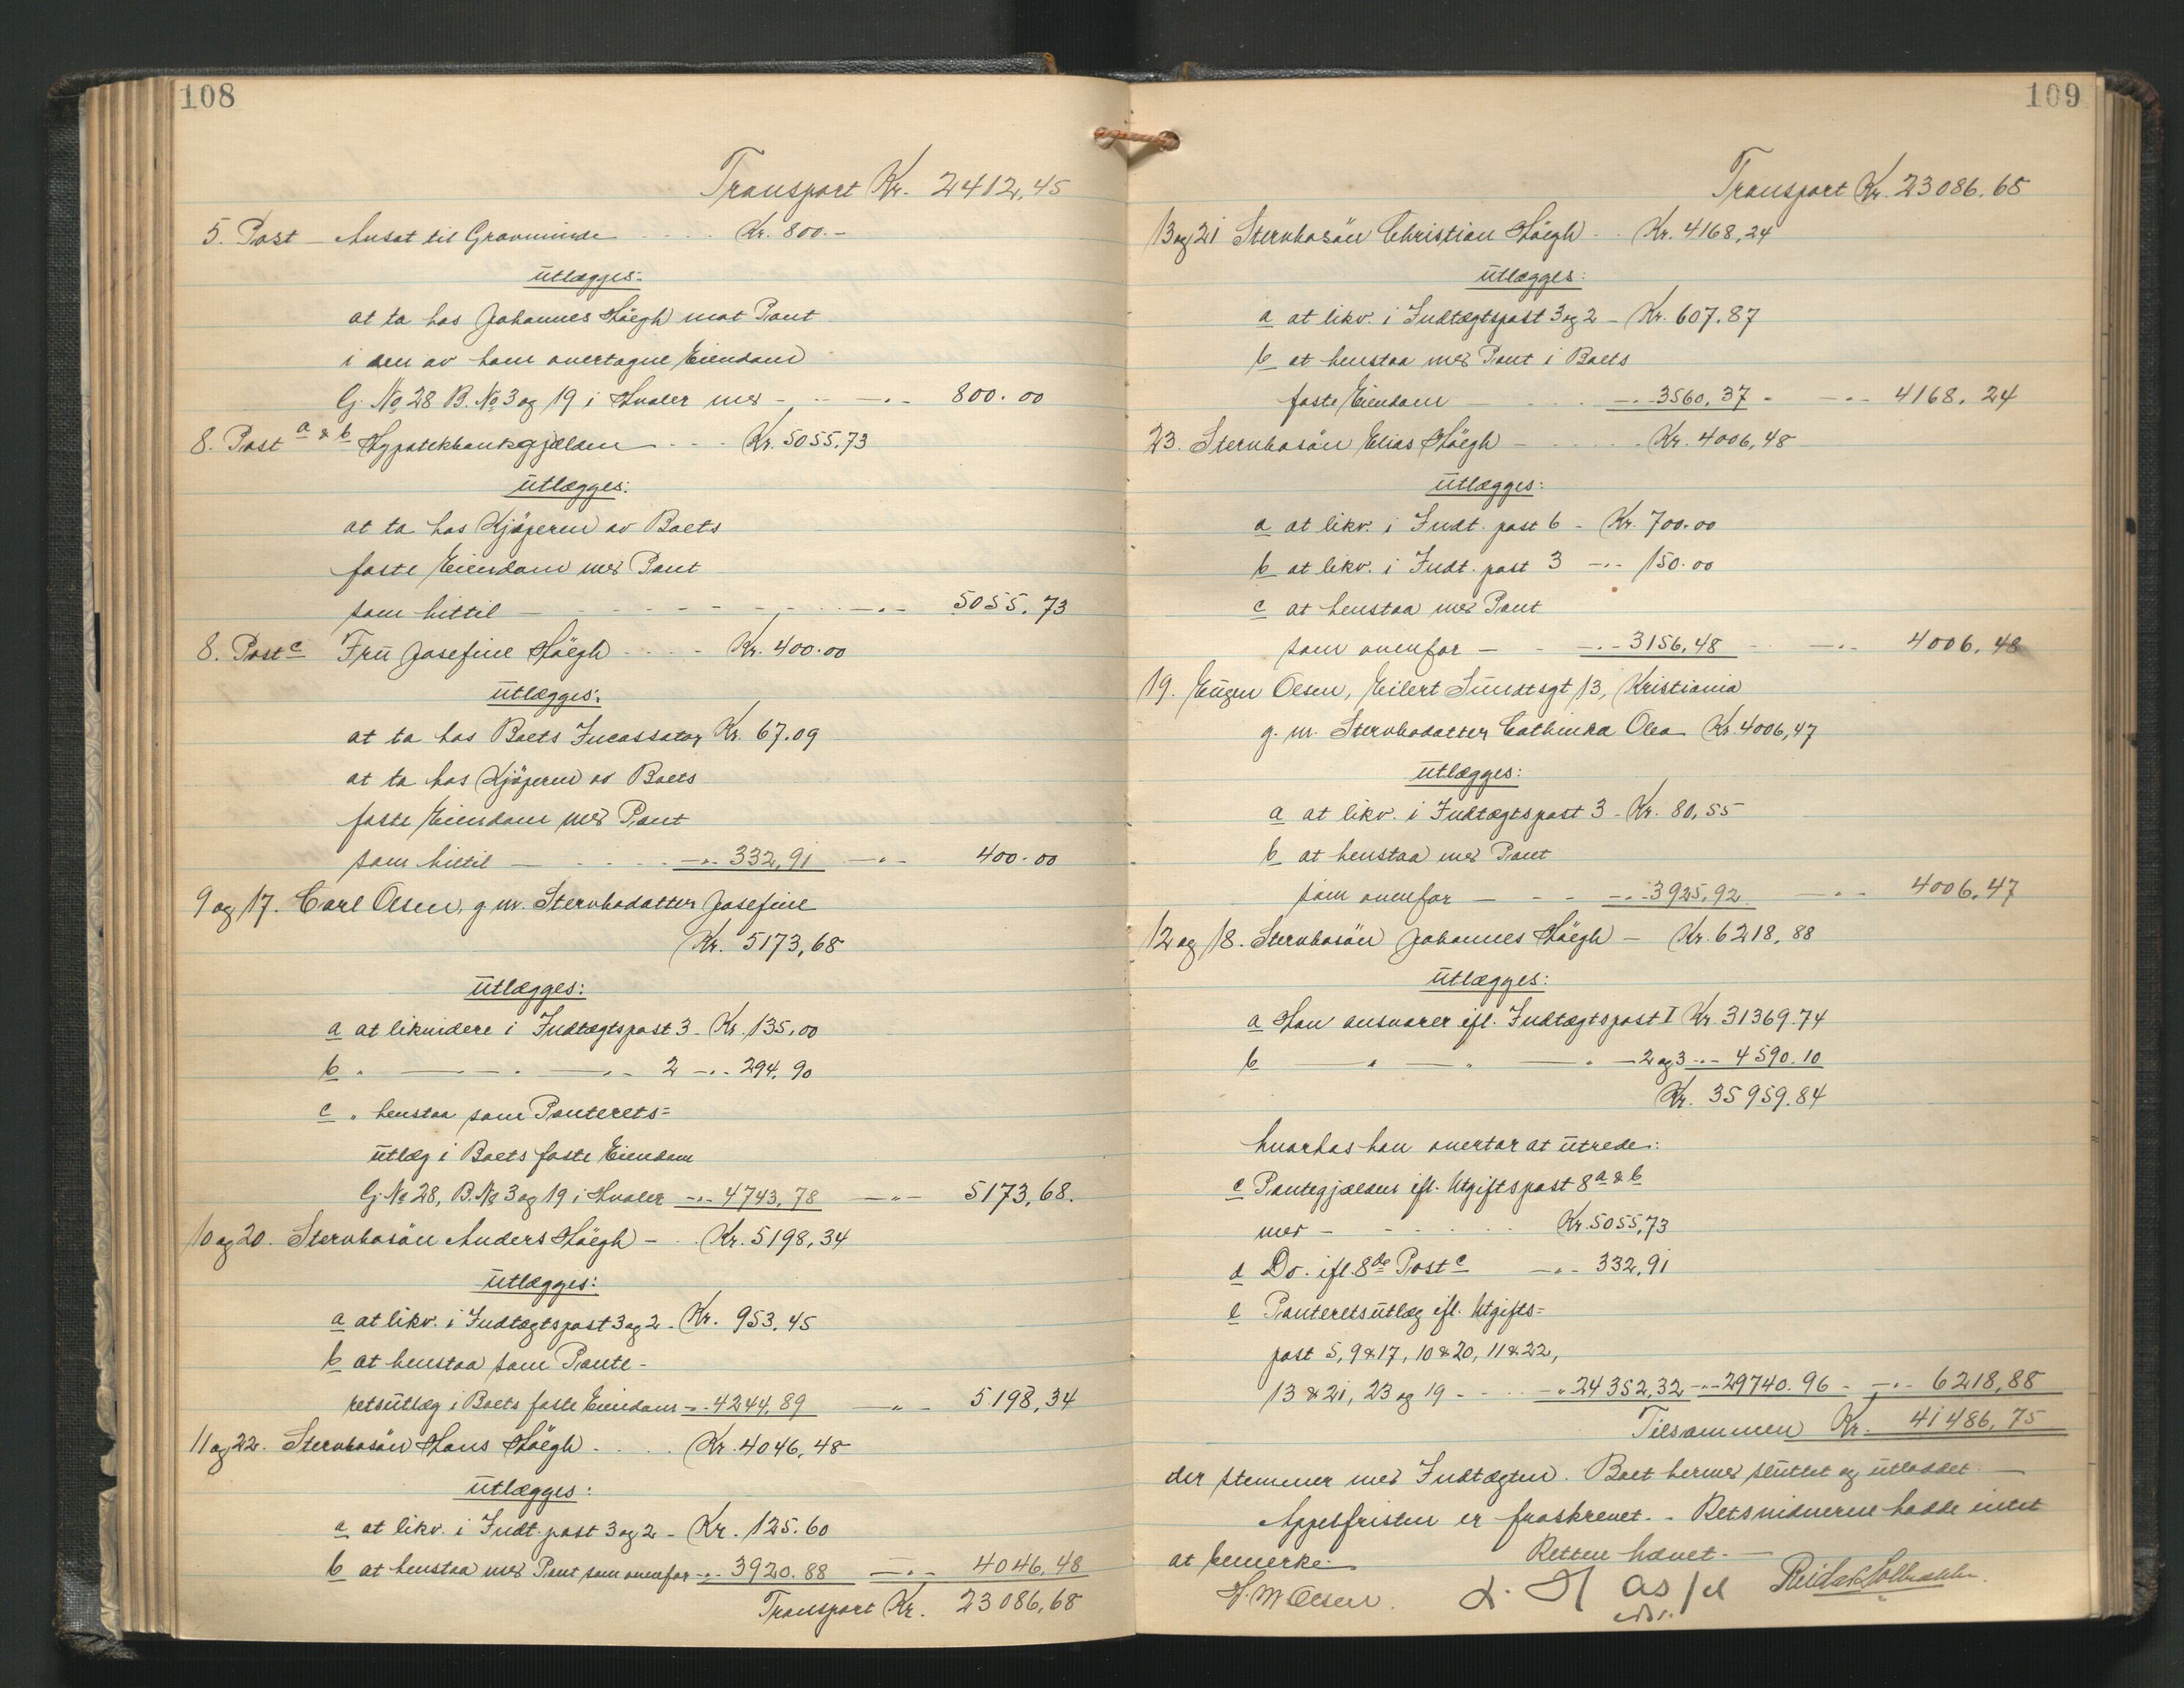 108
Transport Kr. 2412,45
5. Post Ansat til Gravminde Kr. 800.-
utlægges:
at ta hos Johannes Höegh mot Pant
i den av ham overtagne Eiendom
G. No 28 B. No 3 og 19 i Hvaler med - - -"- 800.00
8. Post a & b Hypotekbankgjælden - - - Kr. 5055,73
utlægges:
at ta hos Kjöperen av Boets
faste Eiendom med Pant
som hittil - - - - - - - -"- 5055,73
8. Post c Fru Josefine Höegh - - - Kr. 400.00
utlægges:
at ta hos Boets Incassator Kr. 67.09
at ta hos Kjöperen av Boets
faste Eiendom med Pant
som hittil - - - - -"- 332,91 -"- 400.00
9 og 17. Carl Olsen, g.m. Stervbodatter Josefine
Kr. 5173,68
utlægges:
a at likvidere i Indtægtspost 3 - Kr. 135,00
b " -"- -"- 2 -"- 294,90
c " henstaa som Panterets=
utlæg i Boets faste Eiendom
G. No 28, B. No 3 og 19 i Hvaler -"- 4743,78 -"- 5173,68.
10 og 20. Stervbosön Anders Höegh - Kr. 5198,34
utlægges:
a at likv. i Indtægtspost 3 og 2 - Kr. 953,45
b at henstaa som Pante-
retsutlæg i Boets faste Eiendom -"- 4244,89 -"- 5198,34
11 og 22. Stervbosön Hans Höegh - - - Kr. 4046,48
utlægges:
a at likv. i Indt. post 3 og 2 - Kr. 125.60
b at henstaa med Pant som ovenfor -"- 3920.88 -"- 4046,48
Transport Kr. 23086,68
109
Transport Kr. 23086.68
13 og 21 Stervbosön Christian Höegh - - Kr. 4168,24
utlægges:
a at likv. i Indtægtspost 3 og 2 - Kr. 607.87
b at henstaa med Pant i Boets
faste Eiendom - - - -"- 3560,37 - -"- 4168,24
23. Stervbosön Elias Höegh - - - - Kr. 4006,48
utlægges:
a at likv. i Indt. post 6 - Kr. 700.00
b at likv. i Indt. post 3 -"- 150.00
c at henstaa med Pant
som ovenfor - - -"- 3156,48 - -"- 4006,48
19. Eugen Olsen, Eilert Sundtsgt 13, Kristiania
g.m. Stervbodatter Cathinka Olea Kr. 4006,47
utlægges:
a at likv. i Indtægtspost 3 - Kr. 80,55
b at henstaa med Pant
som ovenfor - - - -"- 3925,92 -"- 4006,47
12 og 18. Stervbosön Johannes Höegh - Kr. 6218,88
utlægges:
a Han ansvarer ifl. Indtægtspost I Kr. 31369.74
b -"- -"- -"- 2 og 3 -"- 4590.10
Kr. 35959.84
hvorhos han overtar at utrede:
c Pantegjælden ifl. Utgiftspost 8 a & b
med - - - - - Kr. 5055,73
d Do. ifl. 8de Post c -"- 332,91
e Panteretsutlæg ifl. Utgifts=
post 5, 9 & 17, 10 & 20, 11 & 22,
13 & 21, 23 og 19 - - - -"- 24352,32 -"- 29740.96 - -"- 6218,88
Tilsammen Kr. 41486,75
der stemmer med Indtægten. Boet hermed sluttet og utloddet. -
Appelfristen er fraskrevet. - Retsvidnerne hadde intet
at bemerke. -
Retten hævet. -
H. M. Olsen.